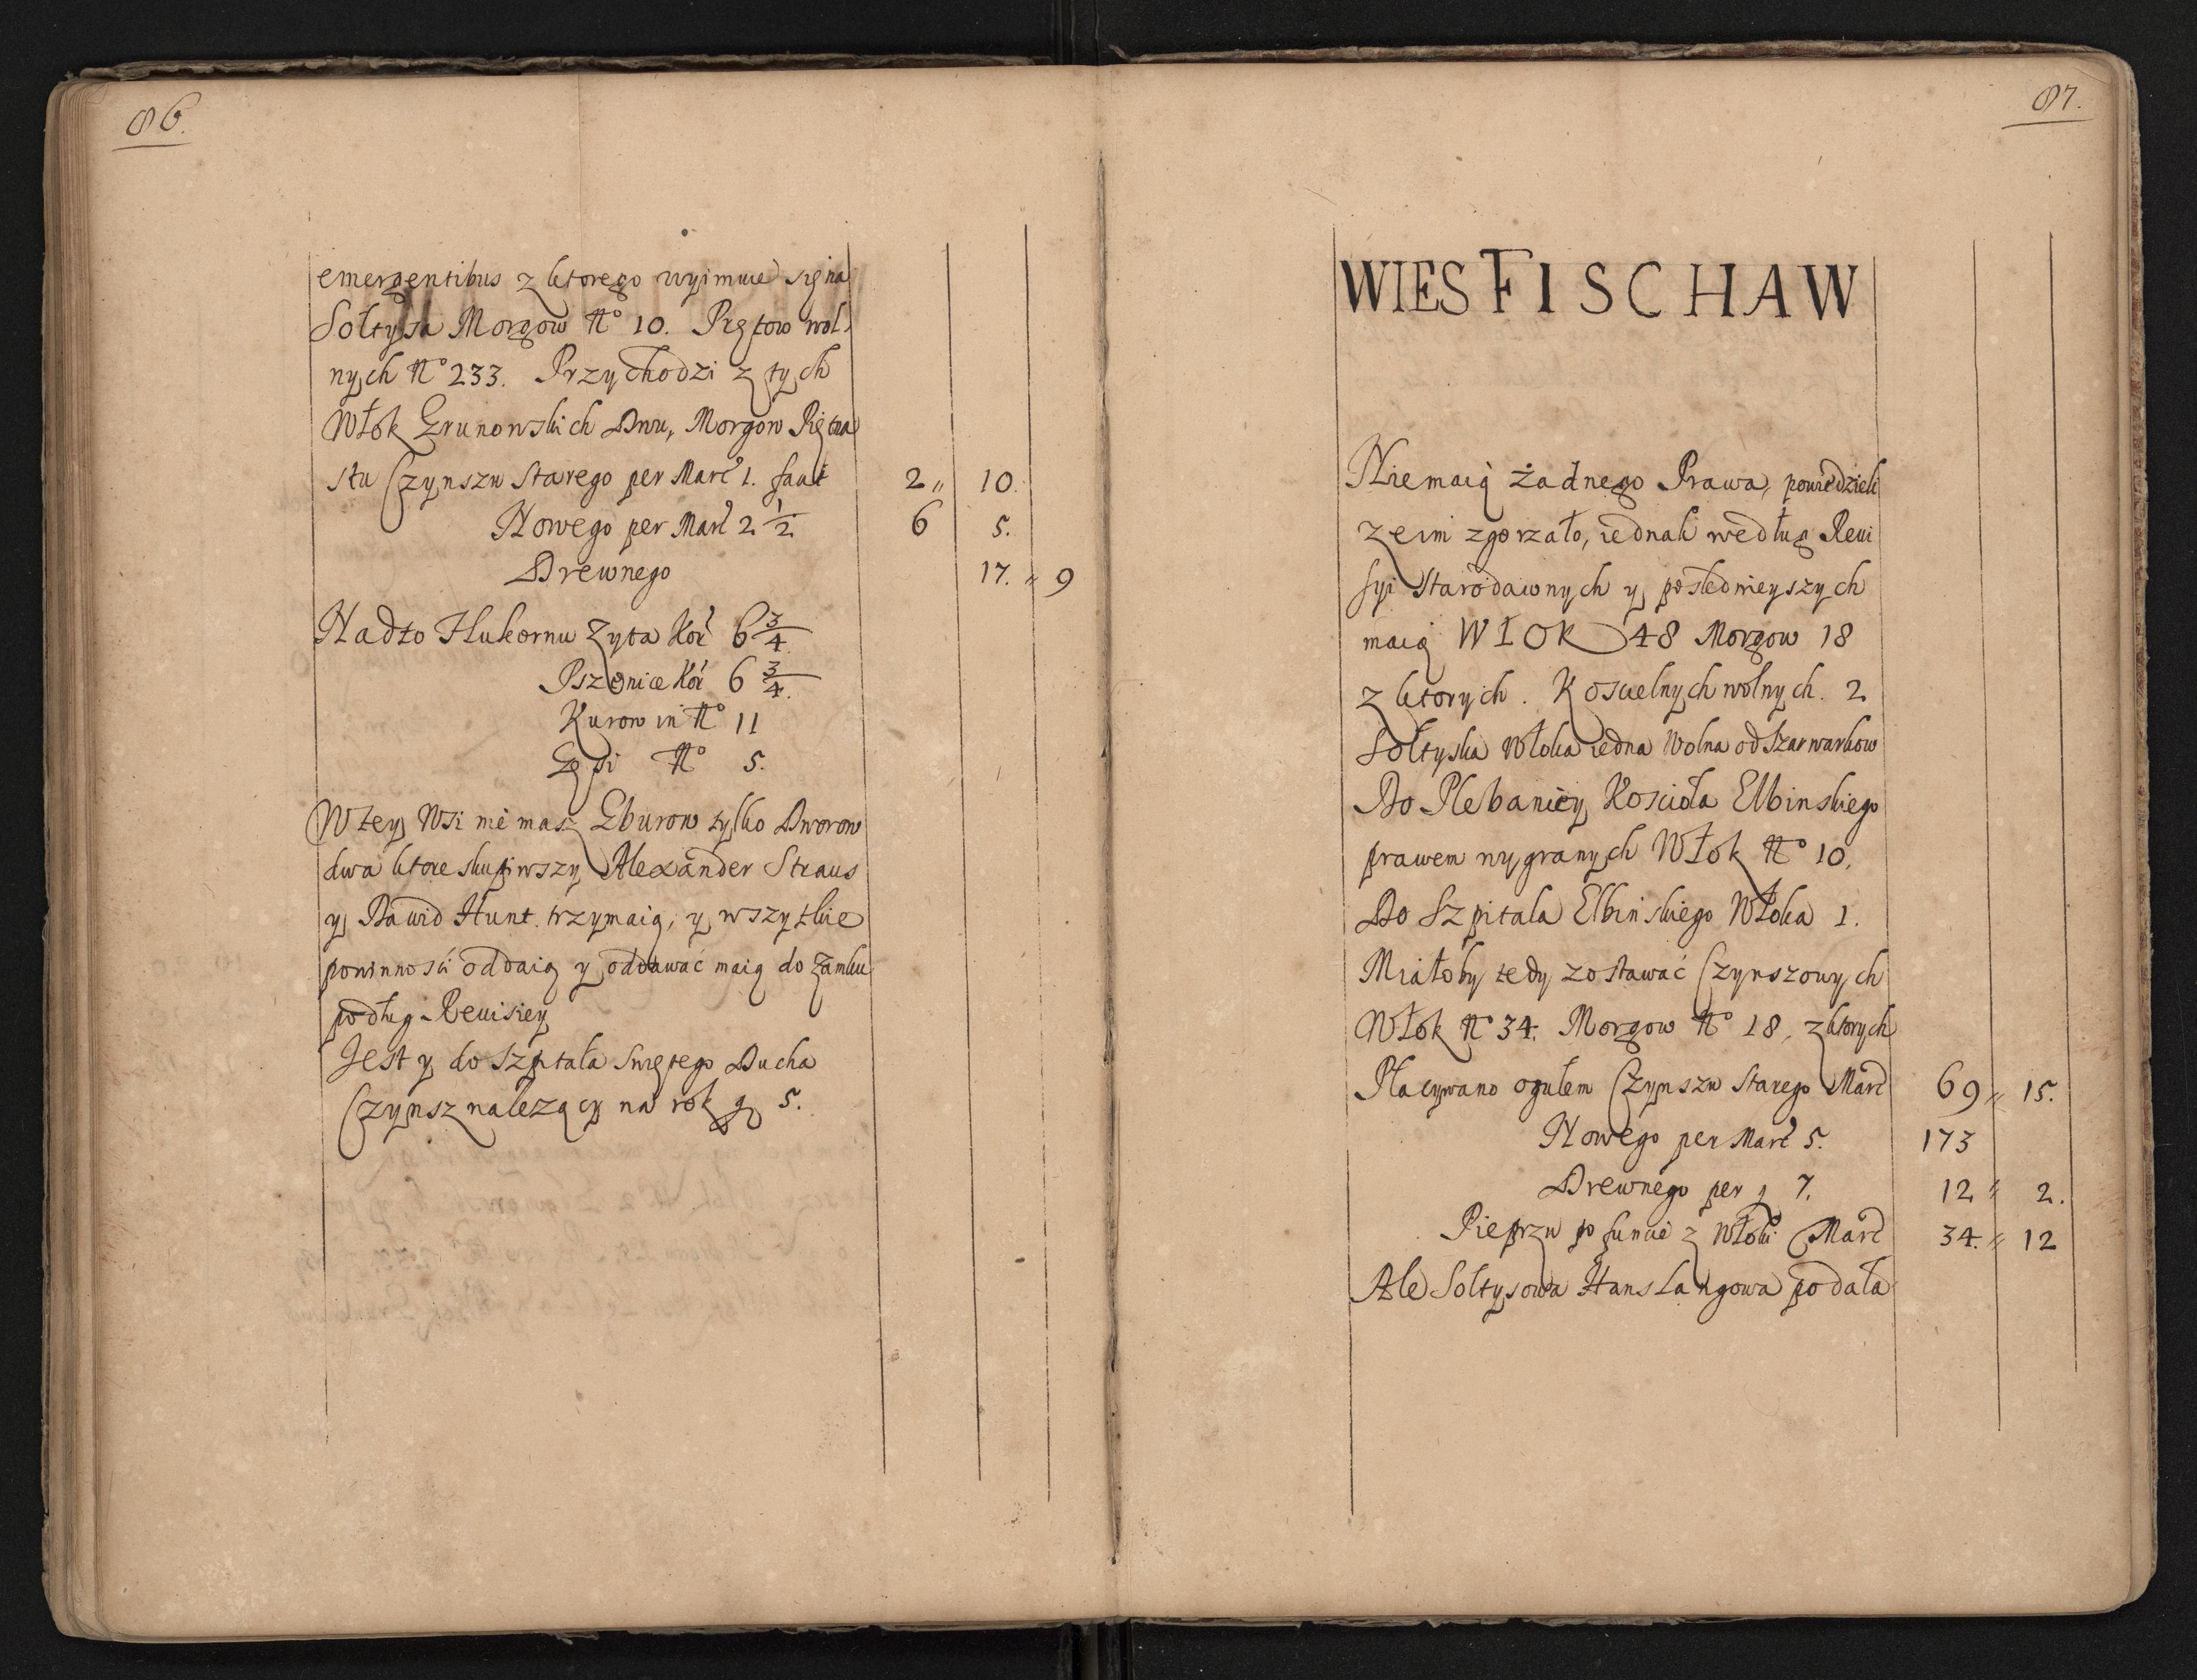 86.
emergentibus z ktorego wyimuie się na
Sołtysa Morgow No 10. Prętow wol-
nych No 233. Przychodzi z tych
Włok Grunowskich Dwu, Morgow Piętna
stu Czynszu Starego per Marc 1. facit 2 " 10.
Nowego per Marc 2 1/2 6 5.
Drewnego 17. " 9
Nadto Hukornu Zyta Kor 6 3/4
Pszenice Kor 6 3/4.
Kurow in No 11
Gęsi No 5.
W tey Wsi niemasz Gburow tylko Dworow
dwa ktore skupiwszy Alexander Straus
y Dawid Hunt. trzymaią, y wszytkie
powinnosci oddaią y oddawać maią do Zamku
podług Reuisiey
Jest y do Szpitala Swiętego Ducha
Czynsz nalezący na rok g 5.
87.
WIES FISCHAW
Niemaią żadnego Prawa, powiedzieli
ze im zgorzało, iednak według Reui
syi Starodawnych y poslednieyszych
maią WŁOK 48 Morgow 18
z ktorych. Koscielnych wolnych. 2
Sołtyska Włoka iedna Wolna od Szarwarkow
Do Plebaniey Kosciola Elbinskiego
prawem wygranych Włok No 10.
Do Szpitala Elbinskiego Włoka 1.
Miałoby tedy zostawać Czynszowych
Włok No 34. Morgow No 18, z ktorych
Płacywano ogułem Czynszu Starego Marc 69 " 15.
Nowego per Marc 5. 173
Drewnego per g 7. 12 " 2.
Pieprzu po funcie z Włoki Marc 34. " 12
Ale Soltysowa Hans Langowa podała